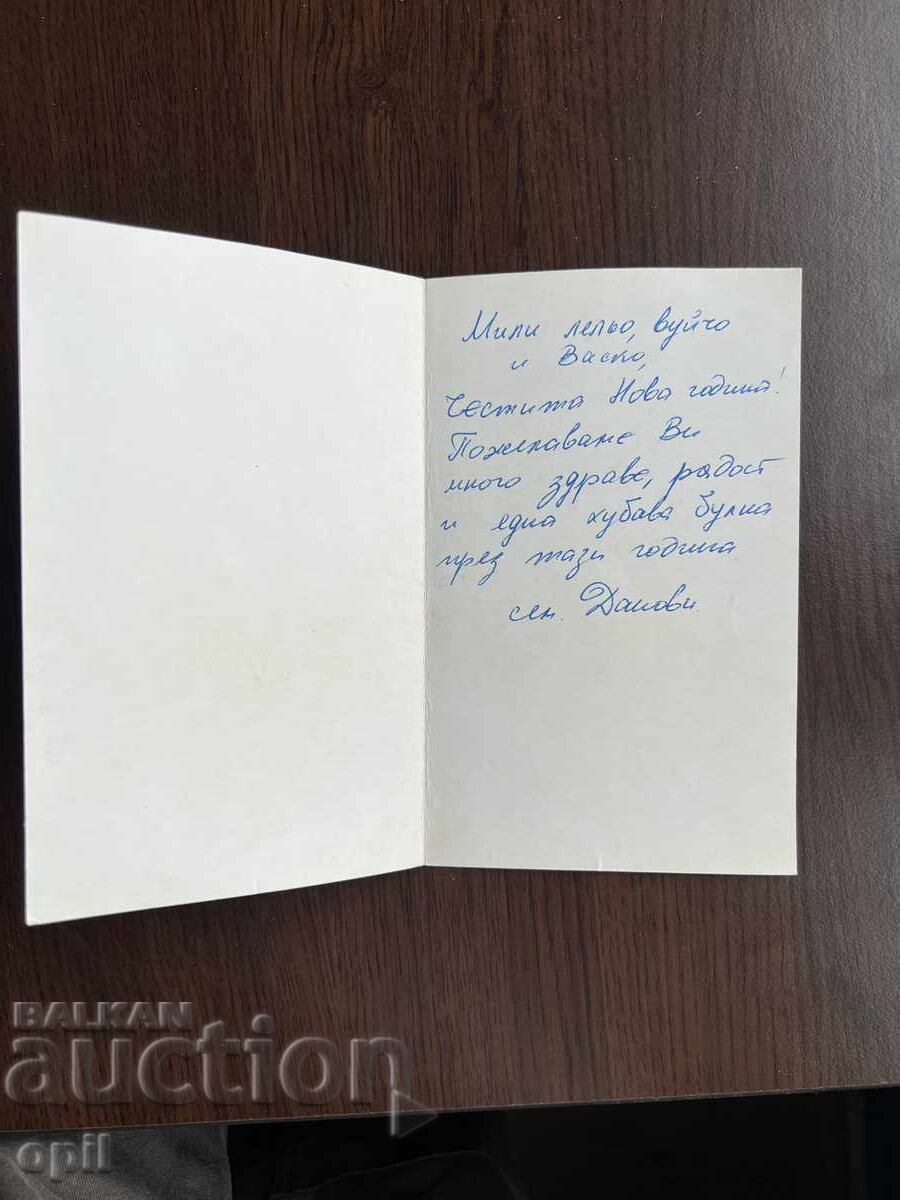 Мили лельо, вуйчо
и Васко,
Честита Нова година!
Пожелаваме Ви
много здраве, радост
и една хубава булка
през тази година
сем. Данови
BALKAN
auction
opil